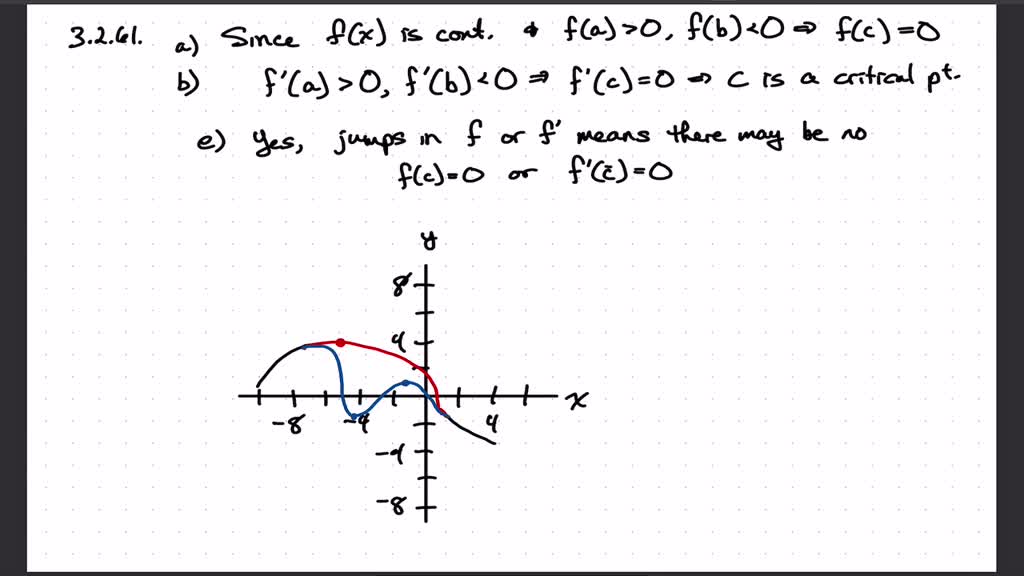 3.2.61. a) Since f(x) is cont. & f(a)>0, f(b)<0 ⇒ f(c)=0
b) f'(a)>0, f'(b)<0 ⇒ f'(c)=0 ⇒ c is a critical pt.
e) Yes, jumps in f or f' means there may be no
f(c)=0 or f'(c̄)=0
y
8
4
x
-8 -4 4
-4
-8